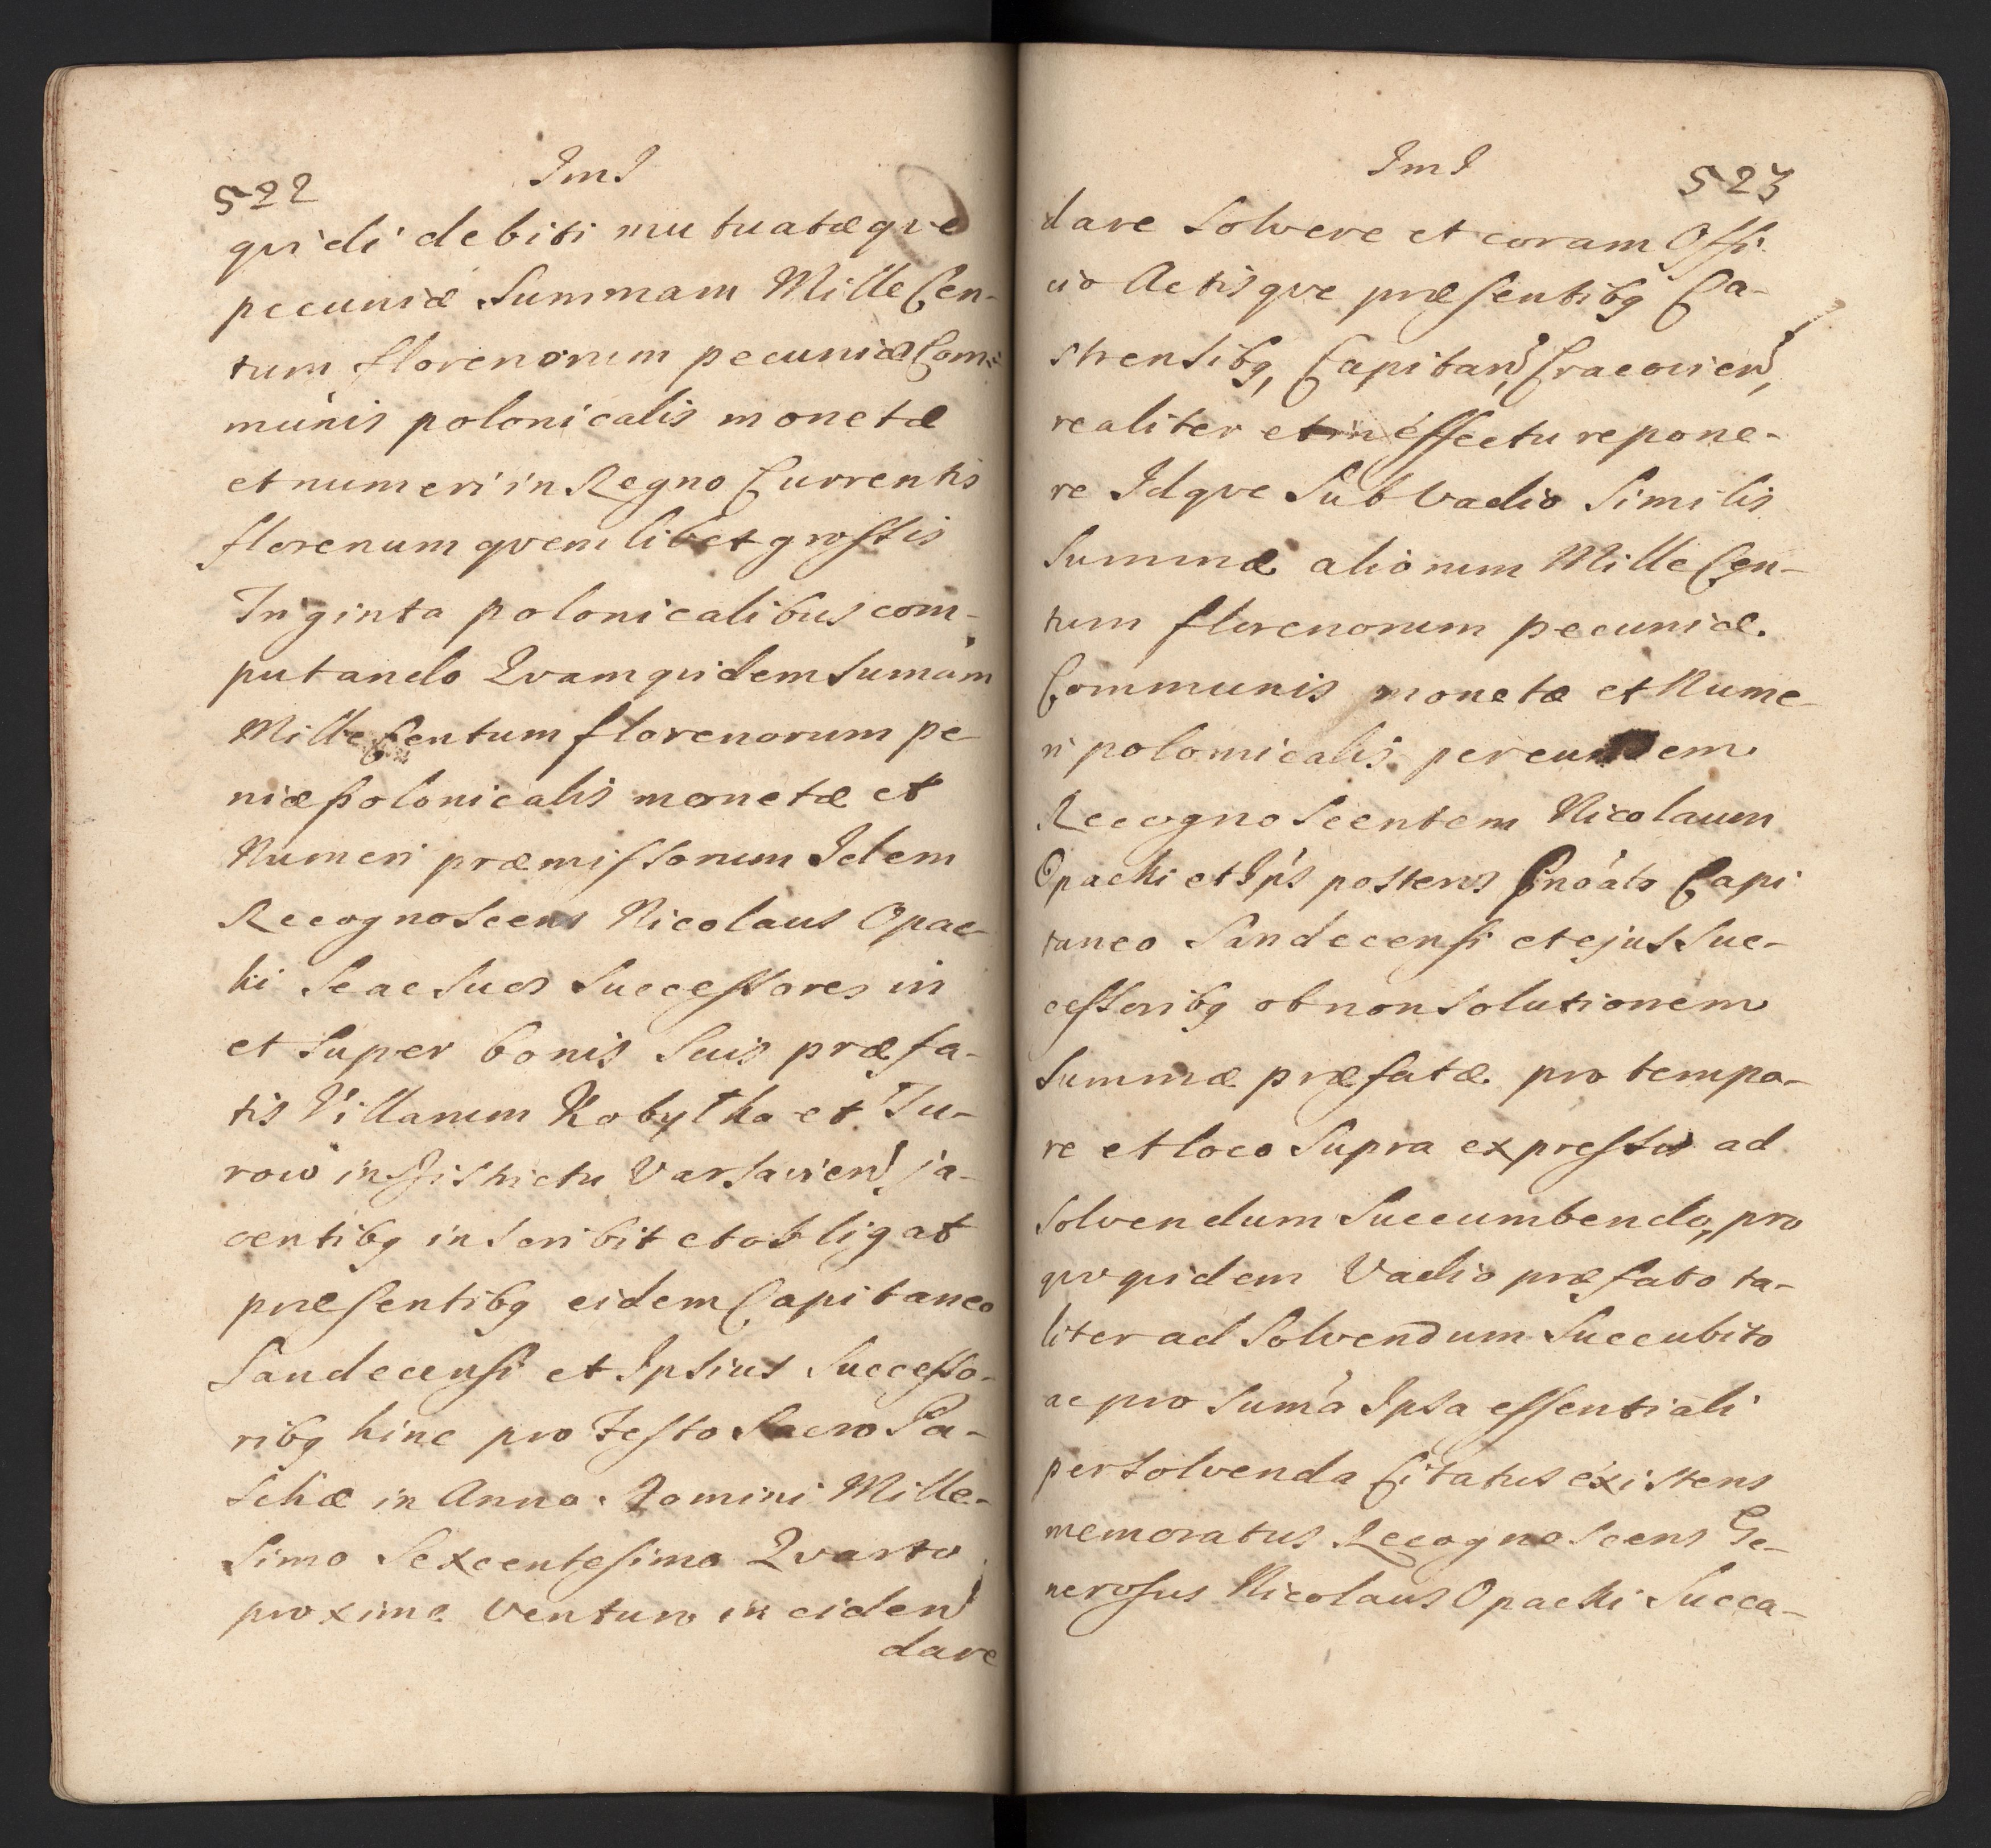 522
JmJ
qvidi debiti mutuatæqve
pecuniæ Summam Mille Cen-
tum florenorum pecuniæ Com-
munis polonicalis monetæ
et numeri in Regno Currentis
florenum qvemlibet grossis
Triginta polonicalibus com-
putando Qvam qvidem Sumam
Mille Centum florenorum pe-
niæ polonicalis monetæ et
Numeri præmissorum Idem
Recognoscens Nicolaus Opac-
ki Se ac Suos Successores in
et Super bonis Suis præfa-
tis Villarum Kobylka et Tu-
row in Districtu Varsavien, ja-
centibq inscribit et obligat
præsentibq eidem Capitaneo
Sandecensi et Ipsius Successo-
ribq hinc pro Festo Sacro Pa-
schæ in Anno Domini Mille-
simo Sexcentesimo Qvarto
proxime Venturo in eiden
dare
JmJ
523
dare Solvere et coram Offi-
cio Actisqve præsentibq Ca-
strensibq, Capitan, Cracovien,
realiter et in effectu repone-
re Idqve Sub Vadio Similis
Summæ aliorum Mille Cen-
tum florenorum pecuniæ
Communis monetæ et Nume-
ri polonicalis per eundem
Recognoscentem Nicolaum
Opacki et Ips posteros Capi
taneo Sandecensi et ejus Suc-
cessoribq ob non Solutionem
Summæ præfatæ pro tempo-
re et loco Supra expressis ad
Solvendum Succumbendo, pro
qvo qvidem Vadio præfato ta-
liter ad Solvendum Succubito
ac pro Suma Ipsa essentiali
persolvenda Citatus existens
memoratus Recognoscens Ge-
nerosus Nicolaus Opacki Succa-